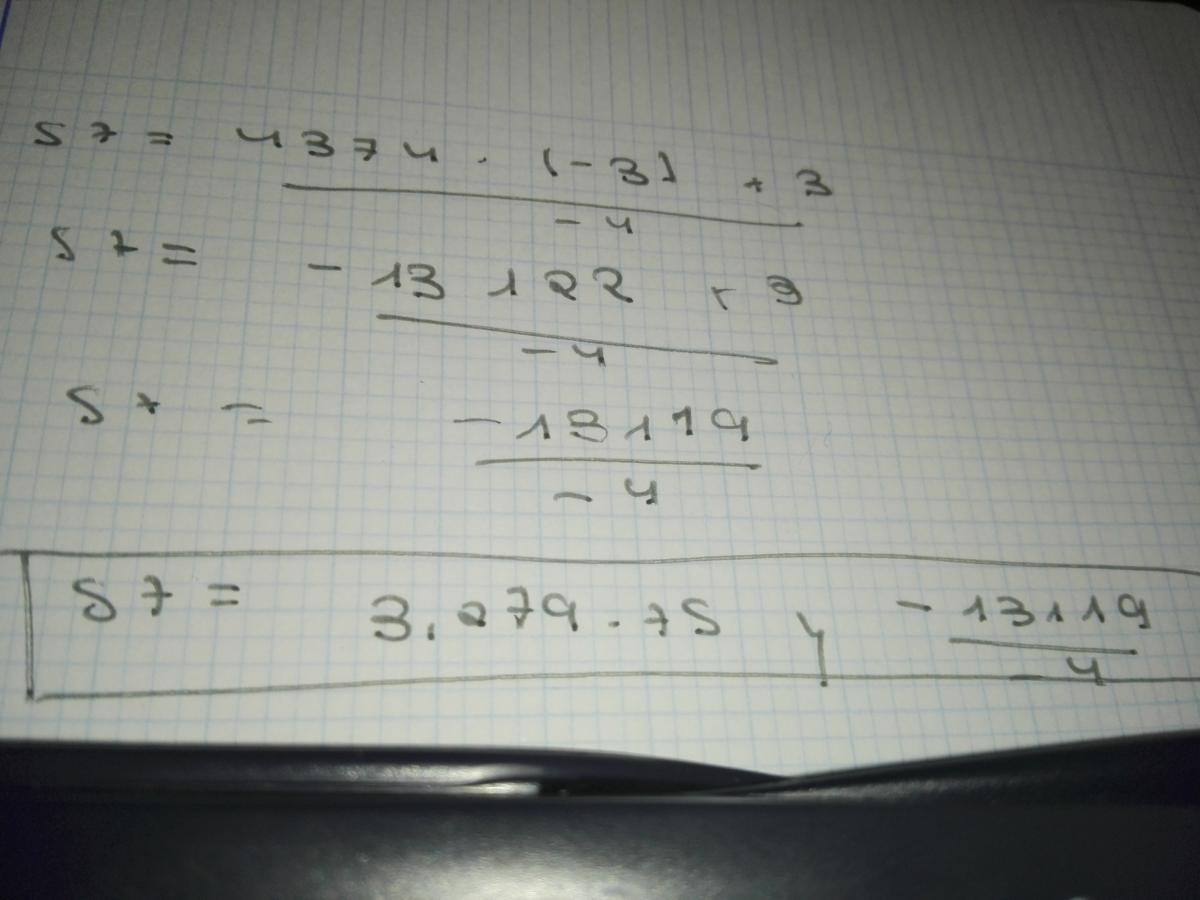 S7 = 4374 . (-3) + 3
-4
S7 = - 13 122 + 3
-4
S7 = -13119
-4
S7 = 3.279.75 y -13119
-4